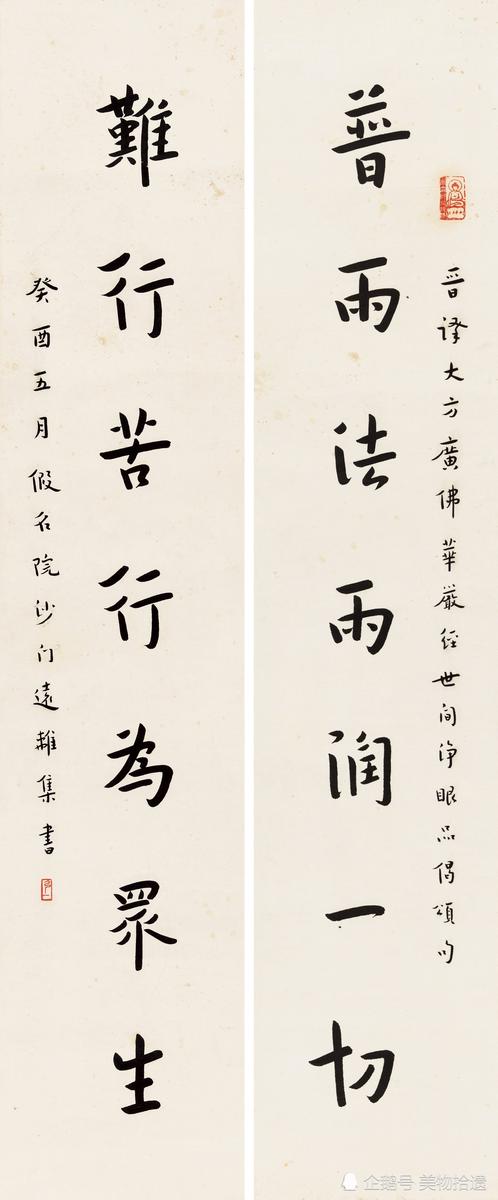 晋譯大方廣佛華嚴經世间净眼品偈頌句
普雨法雨潤一切
難行苦行為眾生
癸酉五月假名院沙门遠離集書
企鹅号 美物拾遗